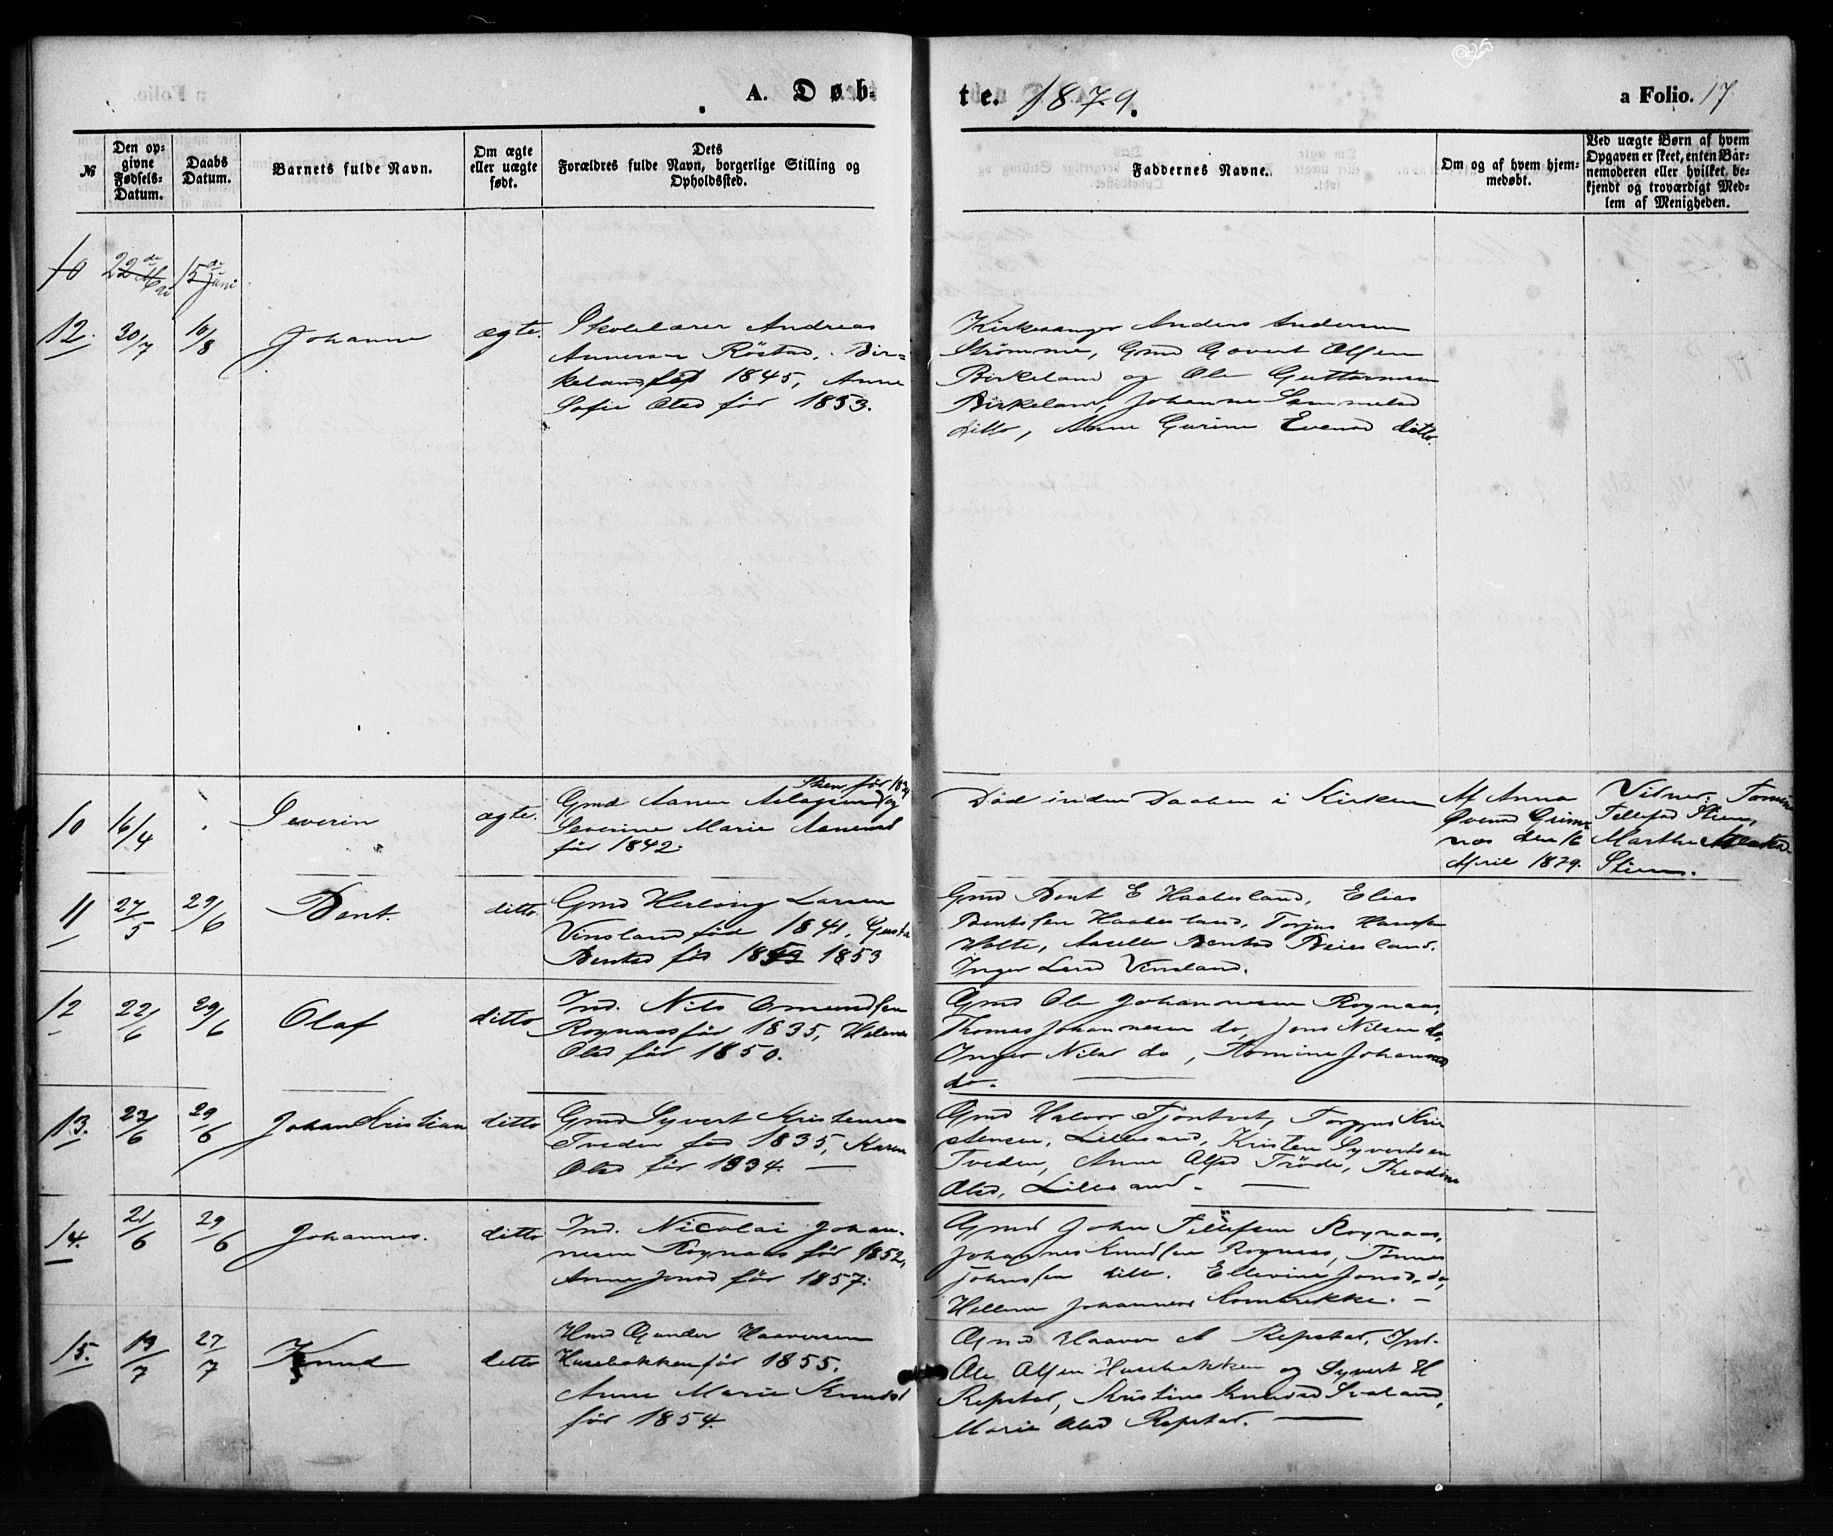 A. Døb-
te. 1879.
a Folio. 17
№
Den op-
givne
Fødsels-
Datum.
Daabs
Datum.
Barnets fulde Navn.
Om ægte
eller uægte
født.
Dets
Forældres fulde Navn, borgerlige Stilling og
Opholdssted.
Faddernes Navne.
Om og af hvem hjem-
medøbt.
Ved uægte Børn af hvem
Opgaven er skeet, enten Bar-
nemoderen eller hvilket be-
kjendt og troværdigt Med-
lem af Menigheden.
10 22de Mai 15de Juni
12. 30/7 10/8 Johanne ægte.
Skolelærer Andreas
Røstad, Bir-
keland født 1845, Anne
Sofie Olsd før 1853.
Kirkesanger Anders Andersen
Strømme, Gmd Govert Olsen
Birkeland og Ole Guttormsen
Birkeland, Johanne Sammelsd
ditto, Anne Gurine Evensd ditto.
10 16/4 Severin ægte.
Stien før 1834
Gmd Aanen Aslagsen og
Severine Marie Aanensd
før 1842.
Død inden Daaben i Kirken
Af Anna
Øvensd Grim-
nes den 16
April 1879.
Vitner: Tomine
Tellefsd Stien,
Marthe
Stien.
11 27/5 29/6 Bent. ditto
Gmd Herlong Larsen
Vinsland føde 1841, Gusta
Bentsd før 1853
Gmd Bent E Haabesland, Elias
Bentsen Haabesland, Torjus Hansen
Holte, Aaselle Bentsd Beiesland.
Inger Larsd Vinsland.
12 22/6 29/6 Olaf ditto
Ind. Nils Omundsen
Rognaas før 1835, Helene
Olsd før 1850.
Gmd Ole Johannesen Rognaas,
Thomas Johannesen do, Jens Nilsen do,
Inger Nilsd do, Tomine Johannesd
do.
13. 23/6 29/6 Johan Kristian ditto
Gmd Syvert Kristensen
Tveden fød 1835, Karen
Olsd før 1834. —
Gmd Halvor Tjøntvet, Torgus Kri-
stensen, Lillesand, Kristen Syvertsen
Tveden, Anne Olsd Trøde, Theodine
Olsd, Lillesand. —
14. 21/6 29/6 Johannes. ditto
Ind. Nicolai Johan-
nesen Rognaas før 1852,
Anne Jensd før 1857.
Gmd John Tellefsen Rognaas,
Johannes Knudsen Rognaas, Tønnes
Johnsen ditto. Ellevine Jonsd. do,
Hellene Johannesd Kombrekke. —
15. 19/7 27/7 Knud ditto
Hmd Gunder Haaversen
Husebakken før 1855.
Anne Marie Knudsd
før 1854.
Gmd Haaver A Repstad, Ind.
Ole Olsen Husebakken og Syvert H
Repstad, Kristine Knudsd Svaland,
Marie Olsd Repstad. —